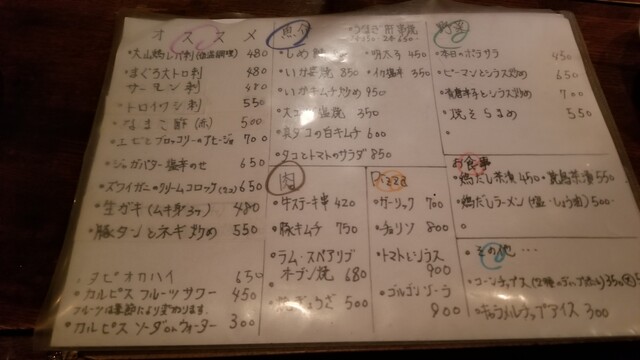 オススメ
・大山鶏レバ刺(低温調理) 480
・まぐろ大トロ刺 480
サーモン刺 480
・トロイワシ刺 550
・なまこ酢(赤) 500
・エビとブロッコリーのアヒージョ 700
・ジャガバター塩辛のせ 650
・ズワイガニのクリームコロッケ 650
・生ガキ(ムキ身3ヶ) 480
・豚タンとネギ炒め 550
・タピオカハイ 650
・カルピスフルーツサワー 450
フルーツは季節により変わります。
・カルピス ソーダorウォーター 300
魚介
350 650
・しめ
・明太子 450
・いか
850
・イカ塩辛 350
・いかキムチ炒め 950
350
・真ダコの白キムチ 600
・タコとトマトのサラダ 850
肉
・牛ステーキ串 420
・豚キムチ 750
・ラム・スペアリブ
オーブン焼 680
ぎょうざ 500
Pizza
・ガーリック 700
・チョリソ 800
・トマトとシラス
900
・ゴルゴンゾーラ
900
野菜
・本日のボテサラ 450
・ピーマンとシラス炒め 650
・青唐辛子とシラス炒め 700
・焼そらまめ 550
お食事
・鶏だし茶漬 450
茶漬 550
・鶏だしラーメン(塩・しょう油) 500
その他…
・コーンチップス
・キャラメルナッツアイス 300